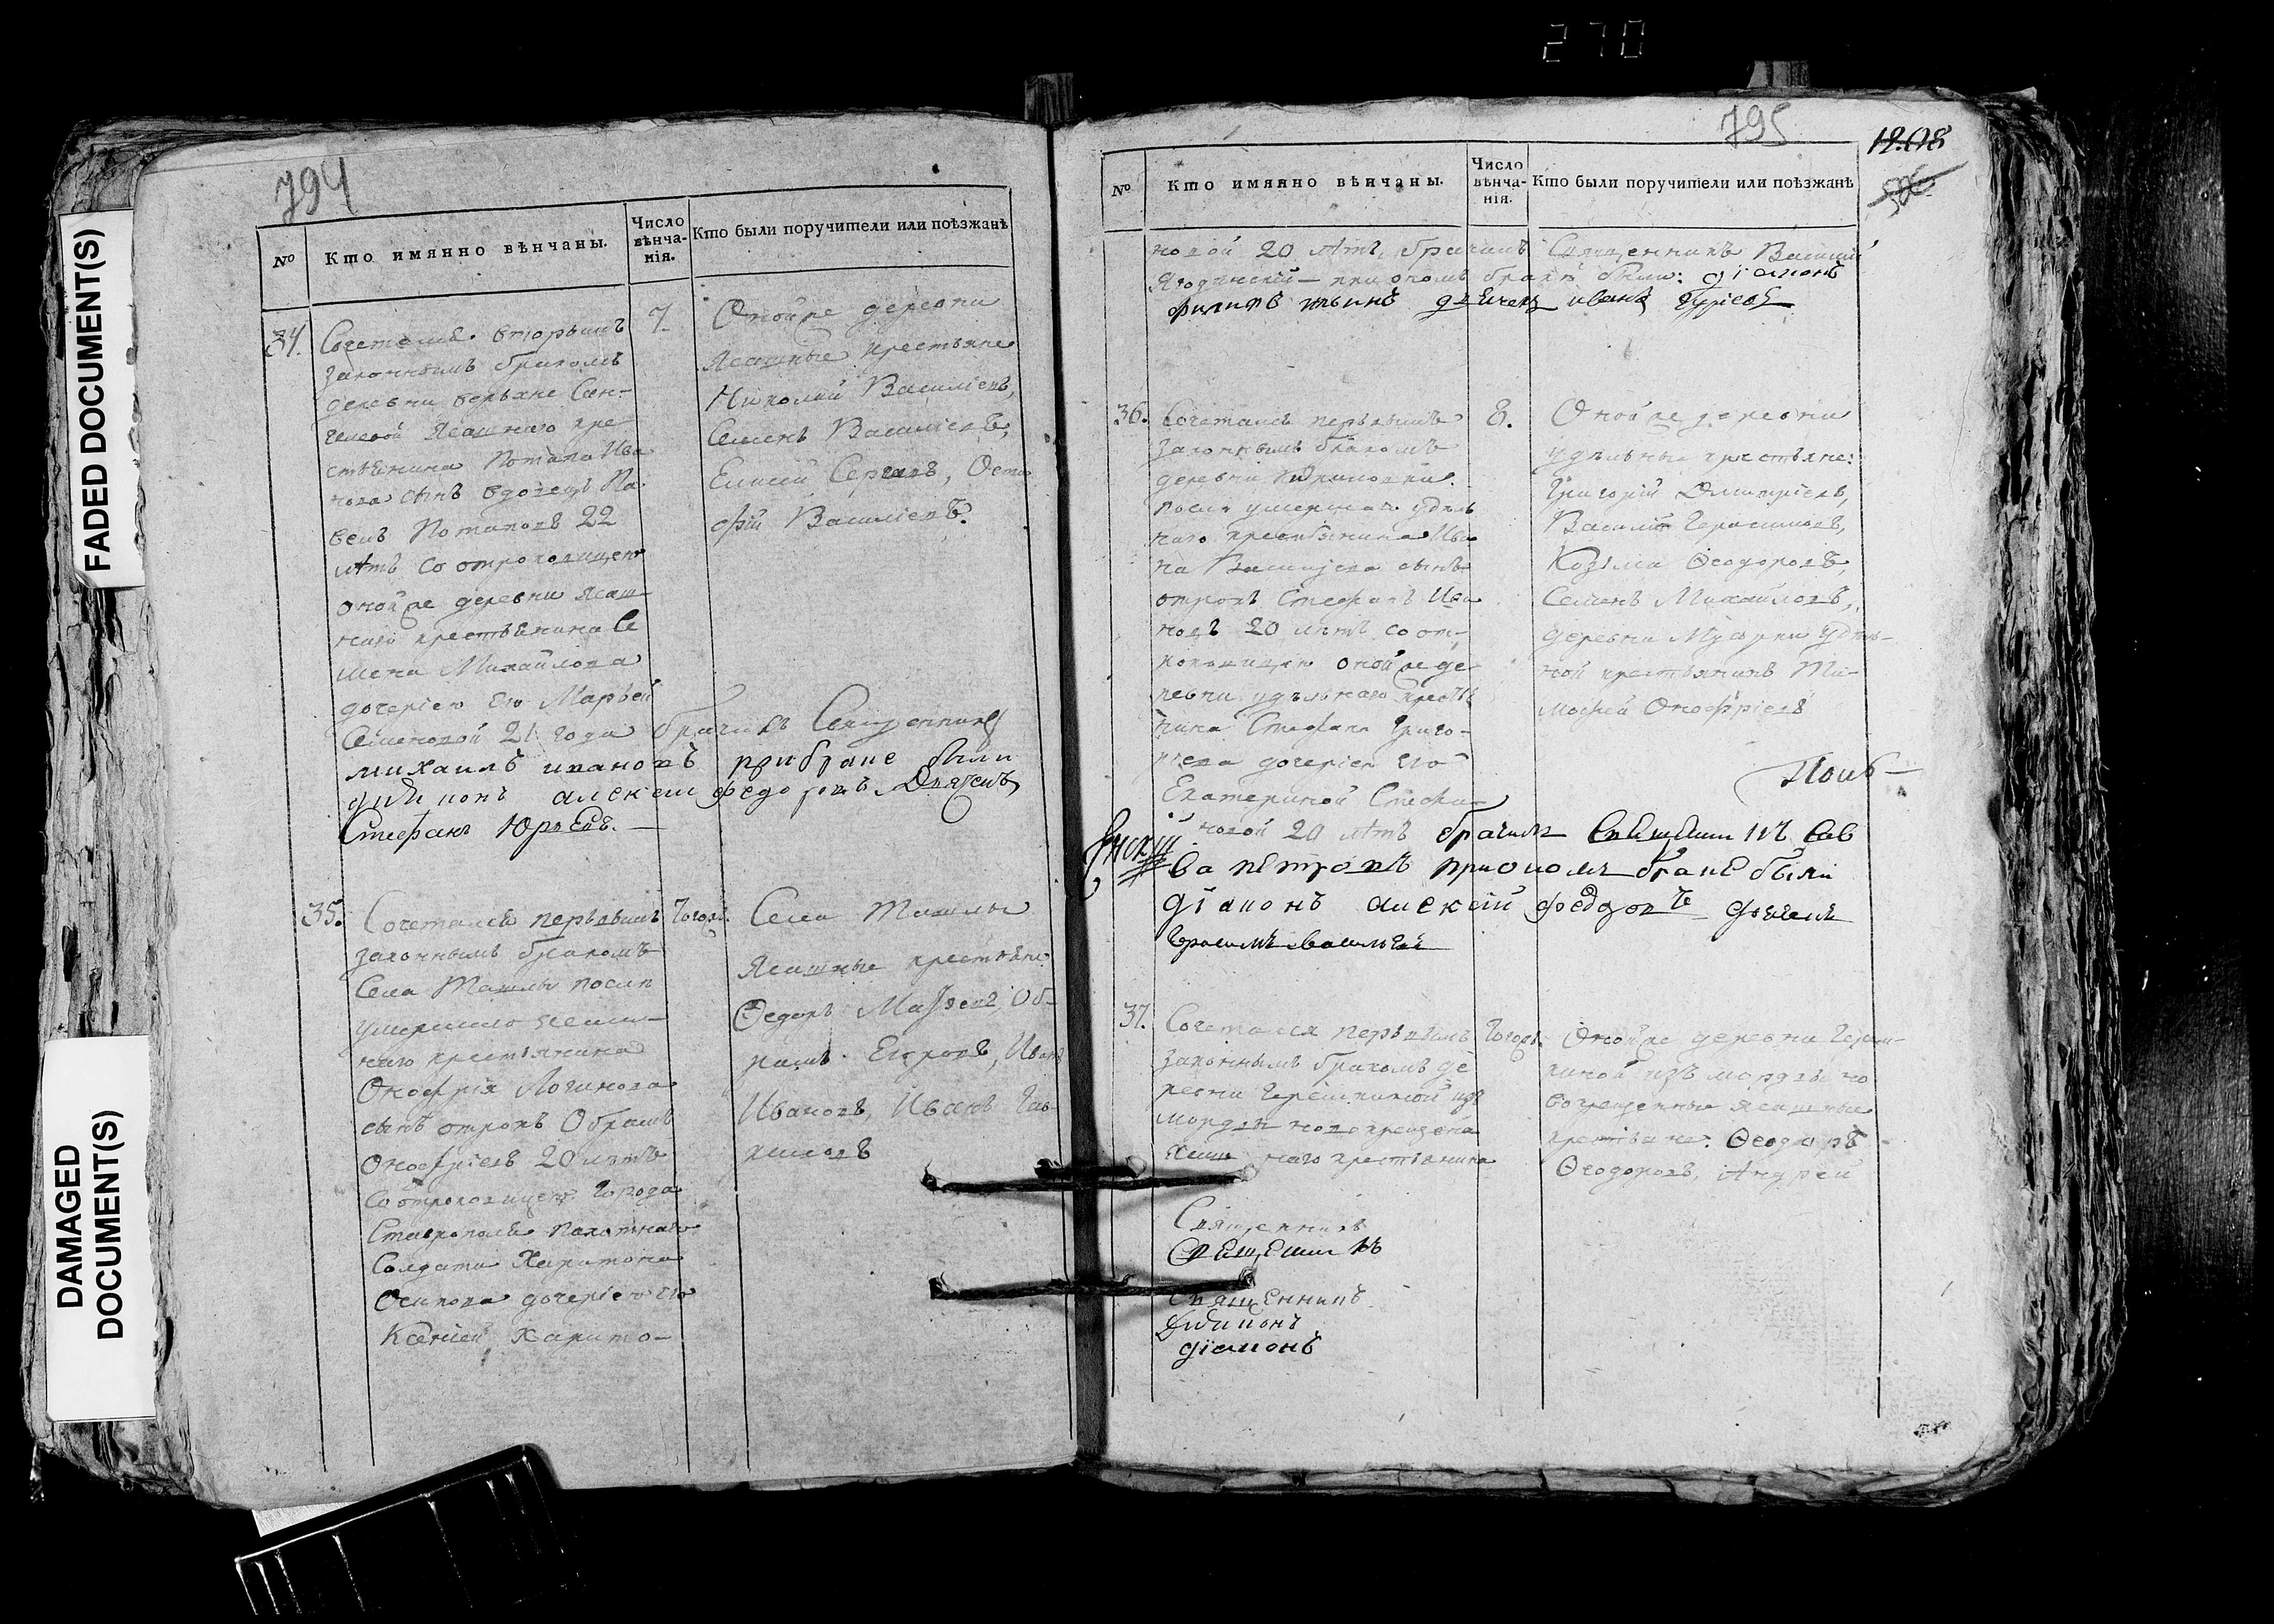 270
FADED DOCUMENT(S)
DAMAGED
DOCUMENT(S)
794
№
Кто имянно вѣнчаны.
Число
вѣнча-
нія.
Кто были поручители или поѣзжанѣ
34.
Сочетался вторымъ
законнымъ бракомъ
деревни верьхне Сан-
Ясашнаго кре
стьянина Потапа Ива
нова сынъ вдовецъ Па
велъ Потаповъ 22
лѣтъ со отроковицею
оной же деревни ясаш
наго крестьянина Се
мена Михайлова
дочерію Ею Марьей
Семеновой 21 года бракъ Священникъ
михаилъ ивановъ при браке были
диаконъ алексеи федоровъ Дьячекъ
Стефанъ Юрьевъ.
7
Оной же деревни
Ясашные крестьяне
Николай Василіевъ,
Семенъ Василіевъ,
Елисей Сергеевъ, Оста
фій Василіевъ.
35.
Сочетался первымъ
законнымъ бракомъ
Села Ташлы после
умершаго ясаш-
наго крестьянина
Оноѳрія Логинова
сынъ отрокъ Обрамъ
Оноѳріевъ 20 лѣтъ
со отроковицею города
Ставрополя пахотнаго
Солдата Харитона
Осипова дочерію его
Ксеніей Харито-
Тогожъ
Села Ташлы
Ясашные крестьяне
Ѳедоръ Об-
рамъ Егоровъ, Иванъ
Ивановъ, Иванъ Гав-
риловъ
795
1208
№
Кто имянно вѣнчаны.
Число
вѣнча-
нія.
Кто были поручители или поѣзжанѣ
новой 20 лѣтъ, брачилъ Священникъ Василій
Ягодинскій при ономъ бракѣ были: діаконъ
филипъ ильинъ дьячекъ иванъ
36.
Сочетался первымъ
законнымъ бракомъ
деревни
после умершаго удѣль
наго крестьянина Ива
на Василіева сынъ
отрокъ Стефанъ Ива
новъ 20 лѣтъ со от-
роковицею оной же де-
ревни удѣльнаго кресть
нина Стефана Григо-
рьева дочерію его
Екатериной Стефа-
новой 20 лѣтъ брачилъ Священникъ Сав
ва петровъ при ономъ браке были
діаконъ алексій федоровъ
8.
Оной же деревни
удѣльные крестьяне:
Григорій Димитріевъ,
Василій Герасимовъ,
Козьма Ѳеодоровъ,
Семенъ Михайловъ,
деревни Мусорки удѣль-
ной крестьянинъ Ти-
моѳей Оноѳріевъ
37.
Сочетался первымъ
законнымъ бракомъ де
ревни изъ
мордвы новокрещена
ясашнаго крестьянина
Тогожъ
Оной же деревни
изъ мордвы но
вокрещенные ясашные
крестьяне: Ѳеодоръ
Ѳеодоровъ, Андрей
Священникъ
Священникъ
Священникъ
Диаконъ
діаконъ